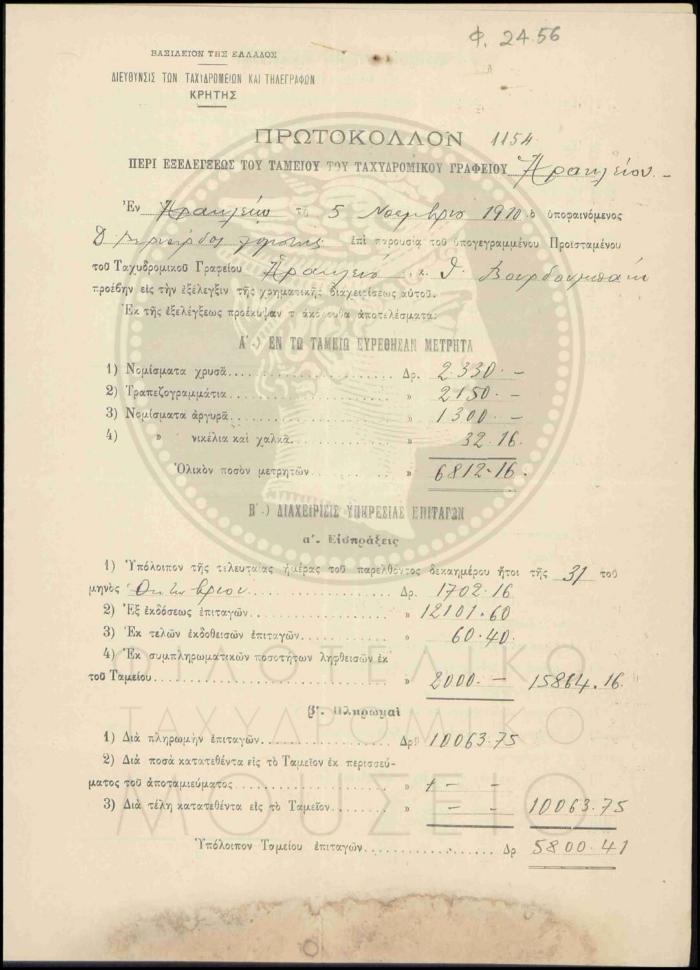 Φ. 24.56
ΒΑΣΙΛΕΙΟΝ ΤΗΣ ΕΛΛΑΔΟΣ
ΔΙΕΥΘΥΝΣΙΣ ΤΩΝ ΤΑΧΥΔΡΟΜΕΙΩΝ ΚΑΙ ΤΗΛΕΓΡΑΦΩΝ
ΚΡΗΤΗΣ
ΠΡΩΤΟΚΟΛΛΟΝ 1154
ΠΕΡΙ ΕΞΕΛΕΓΞΕΩΣ ΤΟΥ ΤΑΜΕΙΟΥ ΤΟΥ ΤΑΧΥΔΡΟΜΙΚΟΥ ΓΡΑΦΕΙΟΥ Ἡρακλείου.-
Ἐν Ἡρακλείῳ τῇ 5 Νοεμβρίου 1910 ὁ ὑποφαινόμενος
Δ ἐπὶ παρουσίᾳ τοῦ ὑπογεγραμμένου Προϊσταμένου
τοῦ Ταχυδρομικοῦ Γραφείου Ἡρακλείου κ.
προέβην εἰς τὴν ἐξέλεγξιν τῆς χρηματικῆς διαχειρίσεως αὐτοῦ.
Ἐκ τῆς ἐξελέγξεως προέκυψαν τὰ ἀκόλουθα ἀποτελέσματα:
Α΄.) ΕΝ ΤΩ ΤΑΜΕΙΩ ΕΥΡΕΘΗΣΑΝ ΜΕΤΡΗΤΑ
1) Νομίσματα χρυσᾶ Δρ. 2330.-
2) Τραπεζογραμμάτια » 2150.-
3) Νομίσματα ἀργυρᾶ » 1300.-
4) » νικέλια καὶ χαλκᾶ » 32.16
Ὁλικὸν ποσὸν μετρητῶν » 6812-16.
Β΄.) ΔΙΑΧΕΙΡΙΣΙΣ ΥΠΗΡΕΣΙΑΣ ΕΠΙΤΑΓΩΝ
α΄. Εἰσπράξεις
1) Ὑπόλοιπον τῆς τελευταίας ἡμέρας τοῦ παρελθόντος δεκαημέρου ἤτοι τῆς 31 τοῦ
μηνὸς Ὀκτωβρίου Δρ. 1702.16
2) Ἐξ ἐκδόσεως ἐπιταγῶν » 12101.60
3) Ἐκ τελῶν ἐκδοθεισῶν ἐπιταγῶν » 60.40.
4) Ἐκ συμπληρωματικῶν ποσοτήτων ληφθεισῶν ἐκ
τοῦ Ταμείου » 2000.— 15864.16.
β΄. Πληρωμαὶ
1) Διὰ πληρωμὴν ἐπιταγῶν Δρ 10063.75
2) Διὰ ποσὰ κατατεθέντα εἰς τὸ Ταμεῖον ἐκ περισσεύ-
ματος τοῦ ἀποταμιεύματος » — —
3) Διὰ τέλη κατατεθέντα εἰς τὸ Ταμεῖον » — — 10063.75
Ὑπόλοιπον Ταμείου ἐπιταγῶν Δρ 5800.41
ΦΙΛΟΤΕΛΙΚΟ
ΤΑΧΥΔΡΟΜΙΚΟ
ΜΟΥΣΕΙΟ